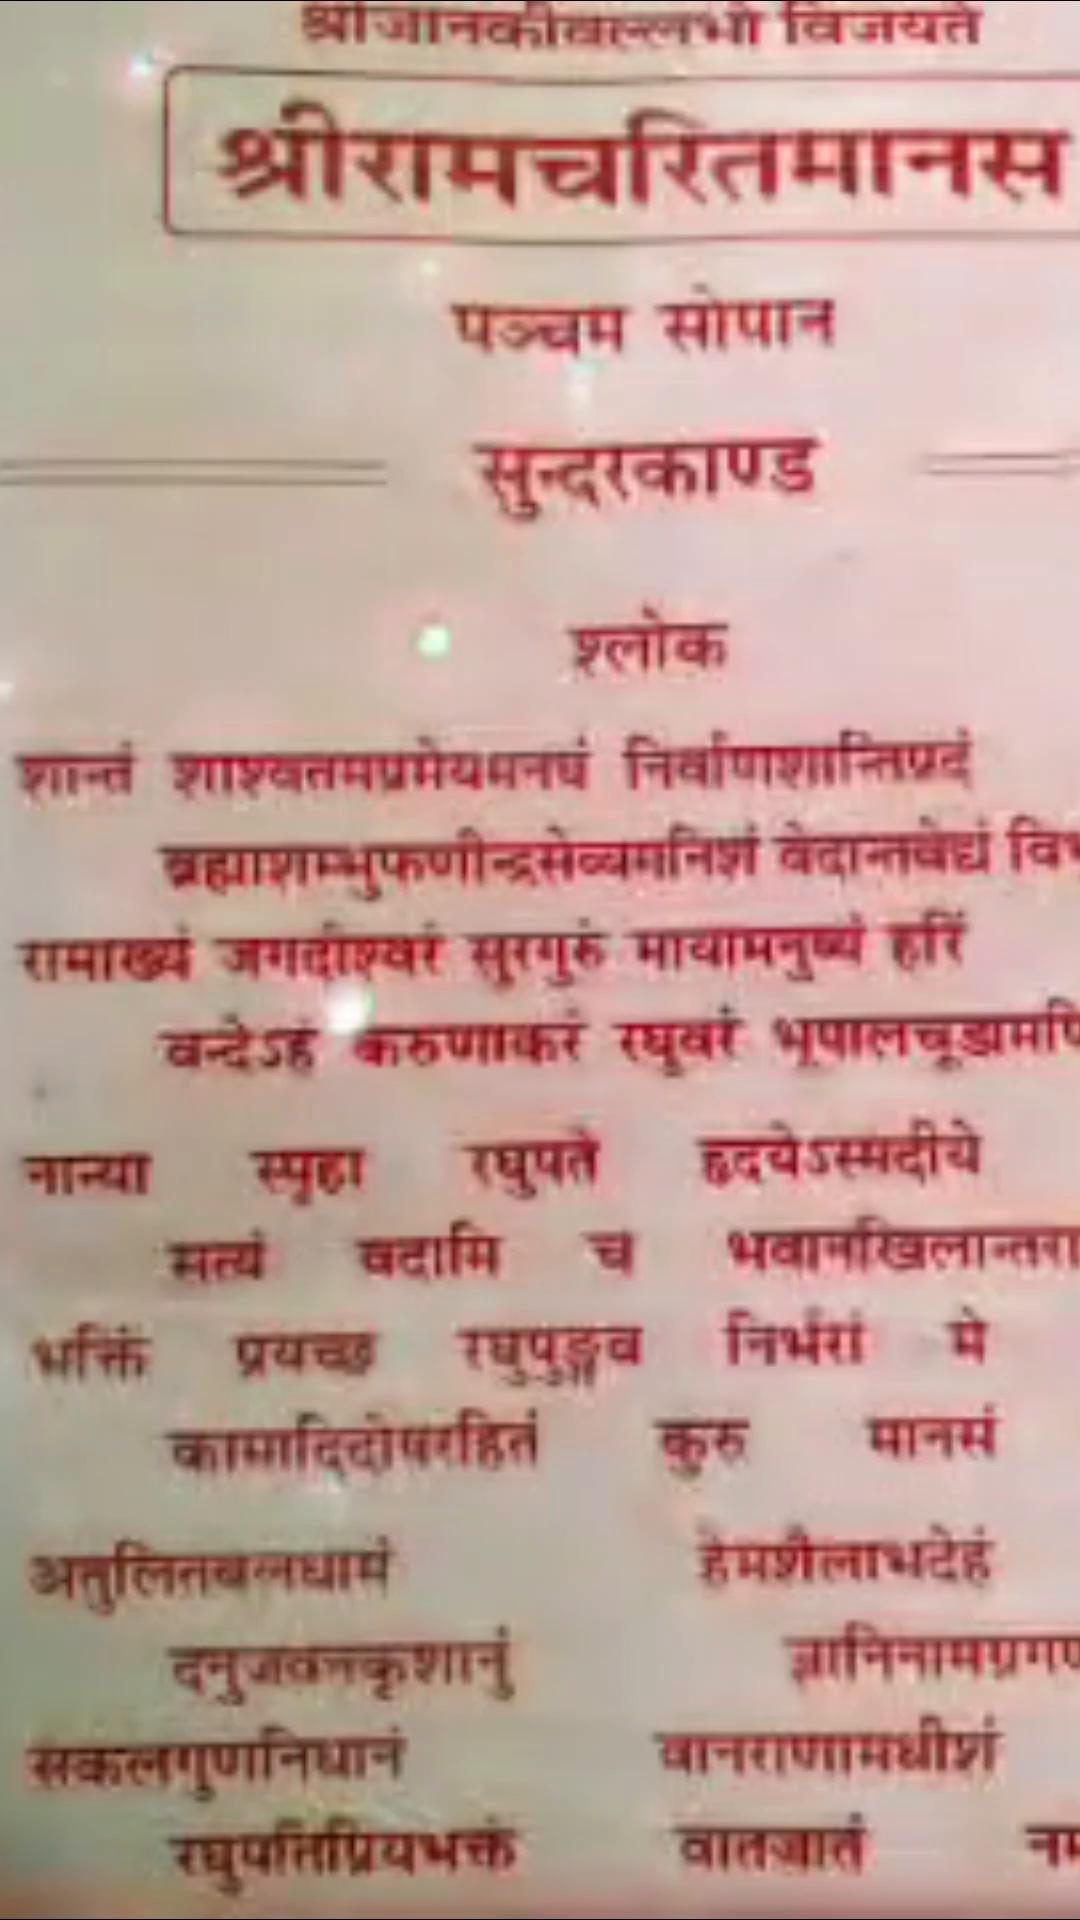 श्रीजानकीवल्लभो विजयते
श्रीरामचरितमानस
पञ्चम सोपान
सुन्दरकाण्ड
श्लोक
शान्तं शाश्वतमप्रमेयमनघं निर्वाणशान्तिप्रदं
ब्रह्माशम्भुफणीन्द्रसेव्यमनिशं वेदान्तवेद्यं
रामाख्यं जगदीश्वरं सुरगुरुं मायामनुष्यं हरिं
वन्देऽहं करुणाकरं रघुवरं
नान्या स्पृहा रघुपते हृदयेऽस्मदीये
सत्यं वदामि च
भक्तिं प्रयच्छ रघुपुङ्गव निर्भरां मे
कामादिदोषरहितं कुरु मानसं
अतुलितबलधामं हेमशैलाभदेहं
दनुजवनकृशानुं
सकलगुणनिधानं वानराणामधीशं
रघुपतिप्रियभक्तं वातजातं